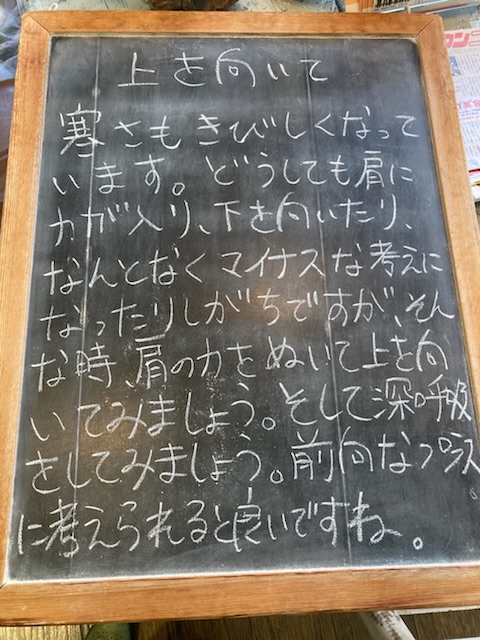 上を向いて
寒さもきびしくなって
います。どうしても肩に
力が入り、下を向いたり、
なんとなくマイナスな考えに
なったりしがちですが、そん
な時、肩の力をぬいて上を向
いてみましょう。そして深呼吸
をしてみましょう。前向なプラス
に考えられると良いですね。